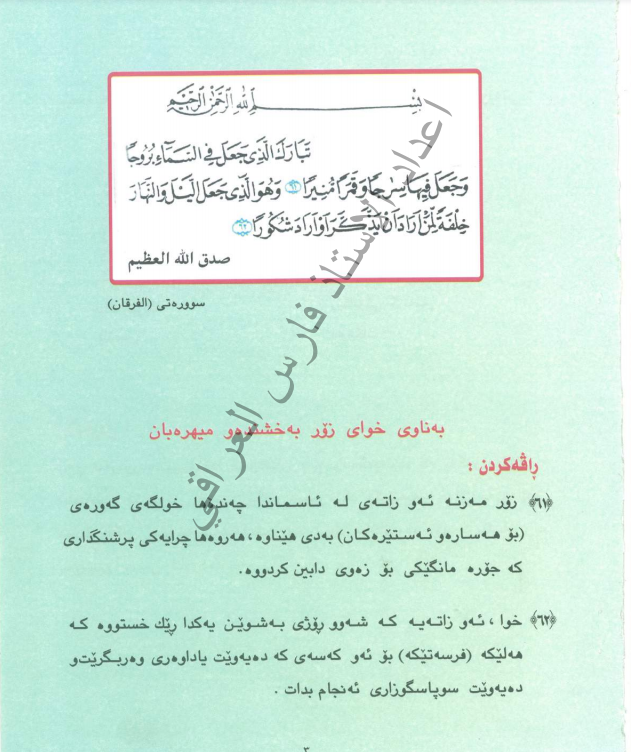 بِسْمِ اللَّهِ الرَّحْمَٰنِ الرَّحِيمِ
تَبَارَكَ الَّذِي جَعَلَ فِي السَّمَاءِ بُرُوجًا
وَجَعَلَ فِيهَا سِرَاجًا وَقَمَرًا مُنِيرًا ۝٦١ وَهُوَ الَّذِي جَعَلَ اللَّيْلَ وَالنَّهَارَ
خِلْفَةً لِمَنْ أَرَادَ أَنْ يَذَّكَّرَ أَوْ أَرَادَ شُكُورًا ۝٦٢
صدق الله العظيم
سوورەتی (الفرقان)
اعداد الاستاذ فارس العراقي
بەناوی خوای زۆر بەخشندەو میهرەبان
ڕاڤەکردن :
﴿٦١﴾ زۆر مەزنە ئەو زاتەی لە ئاسماندا چەندەها خولگەی گەورەی
(بۆ هەسارەو ئەستێرەکان) بەدی هێناوە، هەروەها چرایەکی پرشنگداری
کە جۆرە مانگێکی بۆ زەوی دابین کردووە.
﴿٦٢﴾ خوا ، ئەو زاتەیە کە شەوو ڕۆژی بەشوێن یەکدا ڕێك خستووە کە
هەلێکە (فرسەتێکە) بۆ ئەو کەسەی کە دەیەوێت یاداوەری وەربگرێت و
دەیەوێت سوپاسگوزاری ئەنجام بدات .
٣